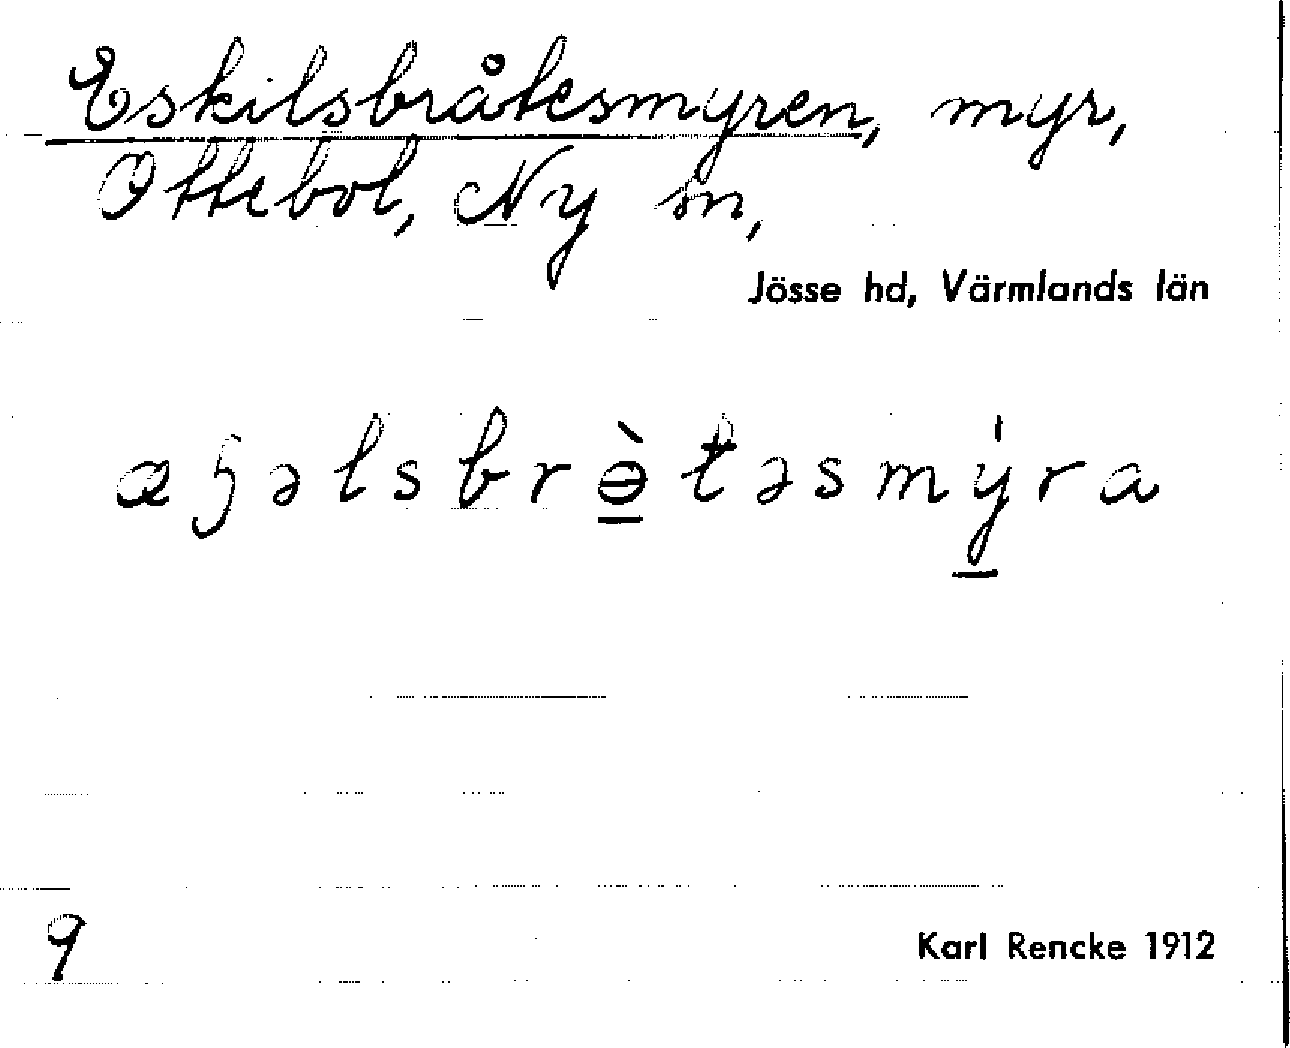 Eskilsbråtesmyren, myr,
Ottebol, Ny sn,
Jösse hd, Värmlands län
æɧəlsbrə̲̀təsmý̲ra
9
Karl Rencke 1912